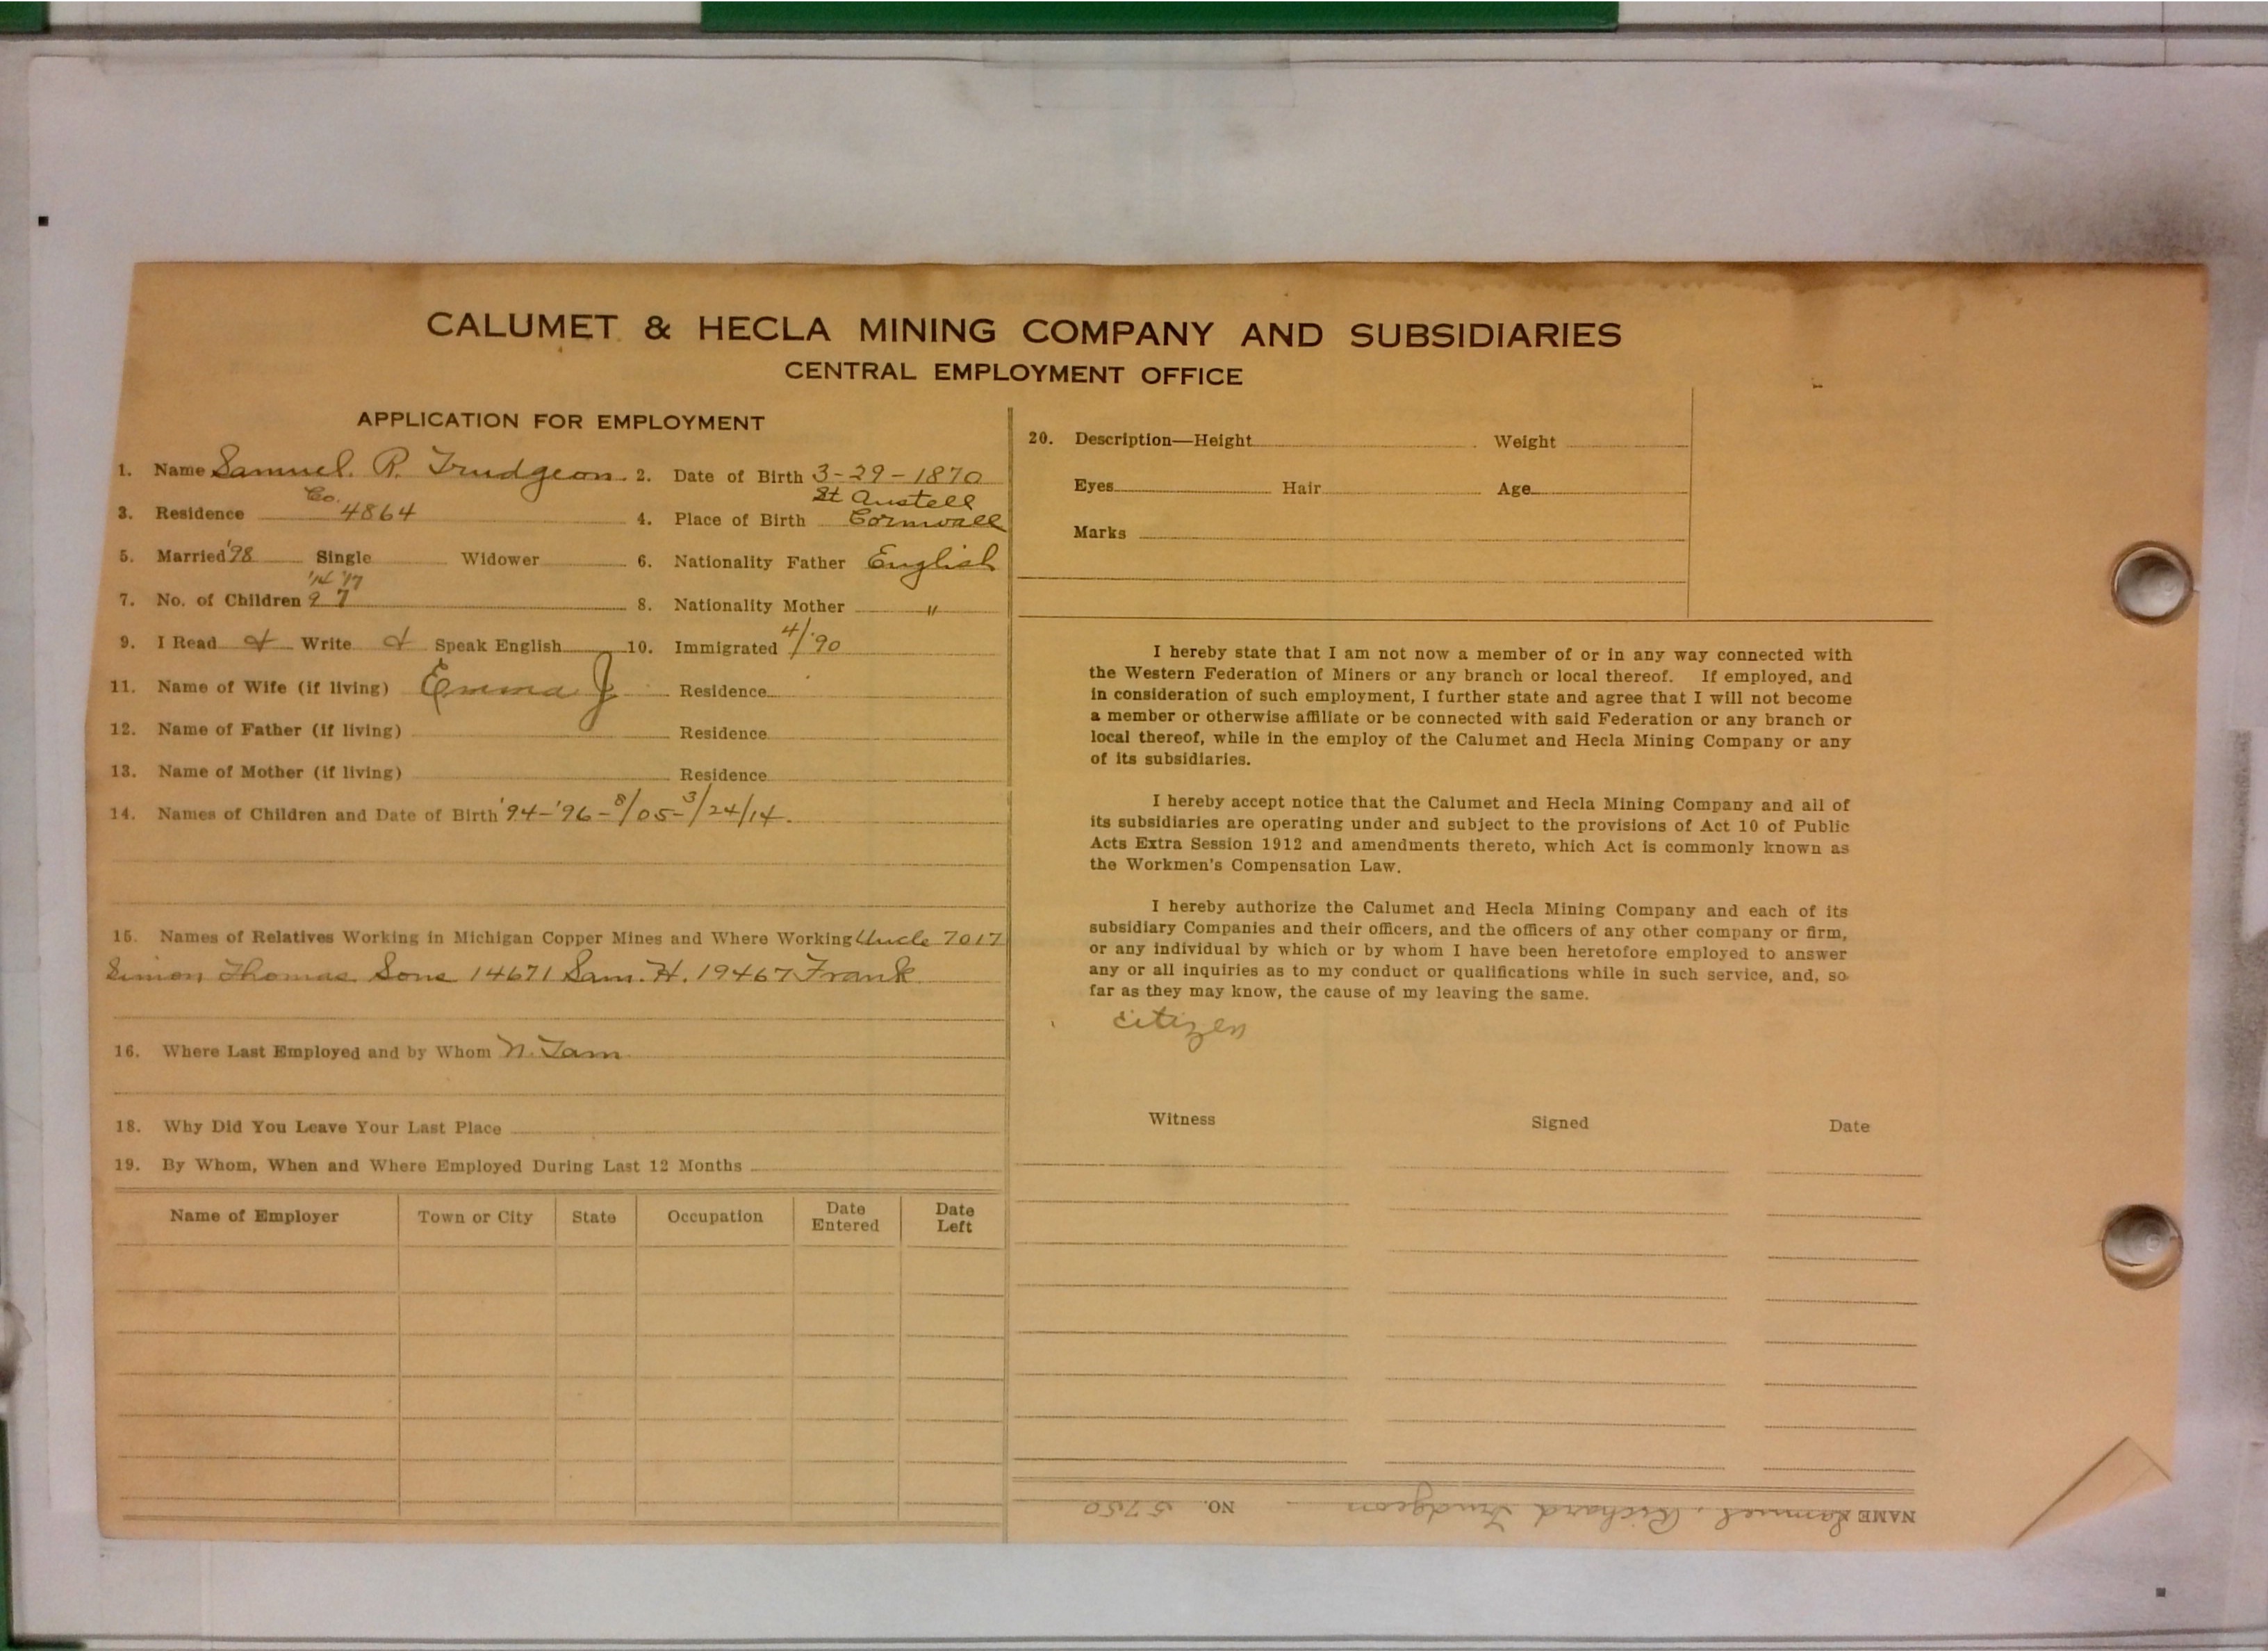 CALUMET & HECLA MINING COMPANY AND SUBSIDIARIES
CENTRAL EMPLOYMENT OFFICE
APPLICATION FOR EMPLOYMENT
1. Name Samuel. R. Trudgeon. 2. Date of Birth 3-29-1870
3. Residence Co. 4864 4. Place of Birth St Austell Cornwall
5. Married '98 Single Widower 6. Nationality Father English
'14 '17
7. No. of Children 9 7 8. Nationality Mother "
9. I Read & Write & Speak English 10. Immigrated 4/'90
11. Name of Wife (if living) Emma J Residence
12. Name of Father (if living) Residence
13. Name of Mother (if living) Residence
14. Names of Children and Date of Birth '94-'96-8/05-3/24/14.
15. Names of Relatives Working in Michigan Copper Mines and Where Working Uncle 7017
Simon Thomas Sons 14671 Sam. H. 19467 Frank
16. Where Last Employed and by Whom N. Tam
18. Why Did You Leave Your Last Place
19. By Whom, When and Where Employed During Last 12 Months
Name of Employer Town or City State Occupation Date Entered Date Left
20. Description—Height Weight
Eyes Hair Age
Marks
I hereby state that I am not now a member of or in any way connected with
the Western Federation of Miners or any branch or local thereof. If employed, and
in consideration of such employment, I further state and agree that I will not become
a member or otherwise affiliate or be connected with said Federation or any branch or
local thereof, while in the employ of the Calumet and Hecla Mining Company or any
of its subsidiaries.
I hereby accept notice that the Calumet and Hecla Mining Company and all of
its subsidiaries are operating under and subject to the provisions of Act 10 of Public
Acts Extra Session 1912 and amendments thereto, which Act is commonly known as
the Workmen's Compensation Law.
I hereby authorize the Calumet and Hecla Mining Company and each of its
subsidiary Companies and their officers, and the officers of any other company or firm,
or any individual by which or by whom I have been heretofore employed to answer
any or all inquiries as to my conduct or qualifications while in such service, and, so
far as they may know, the cause of my leaving the same.
citizen
Witness Signed Date
NAME Samuel, Richard Trudgeon NO. 5750